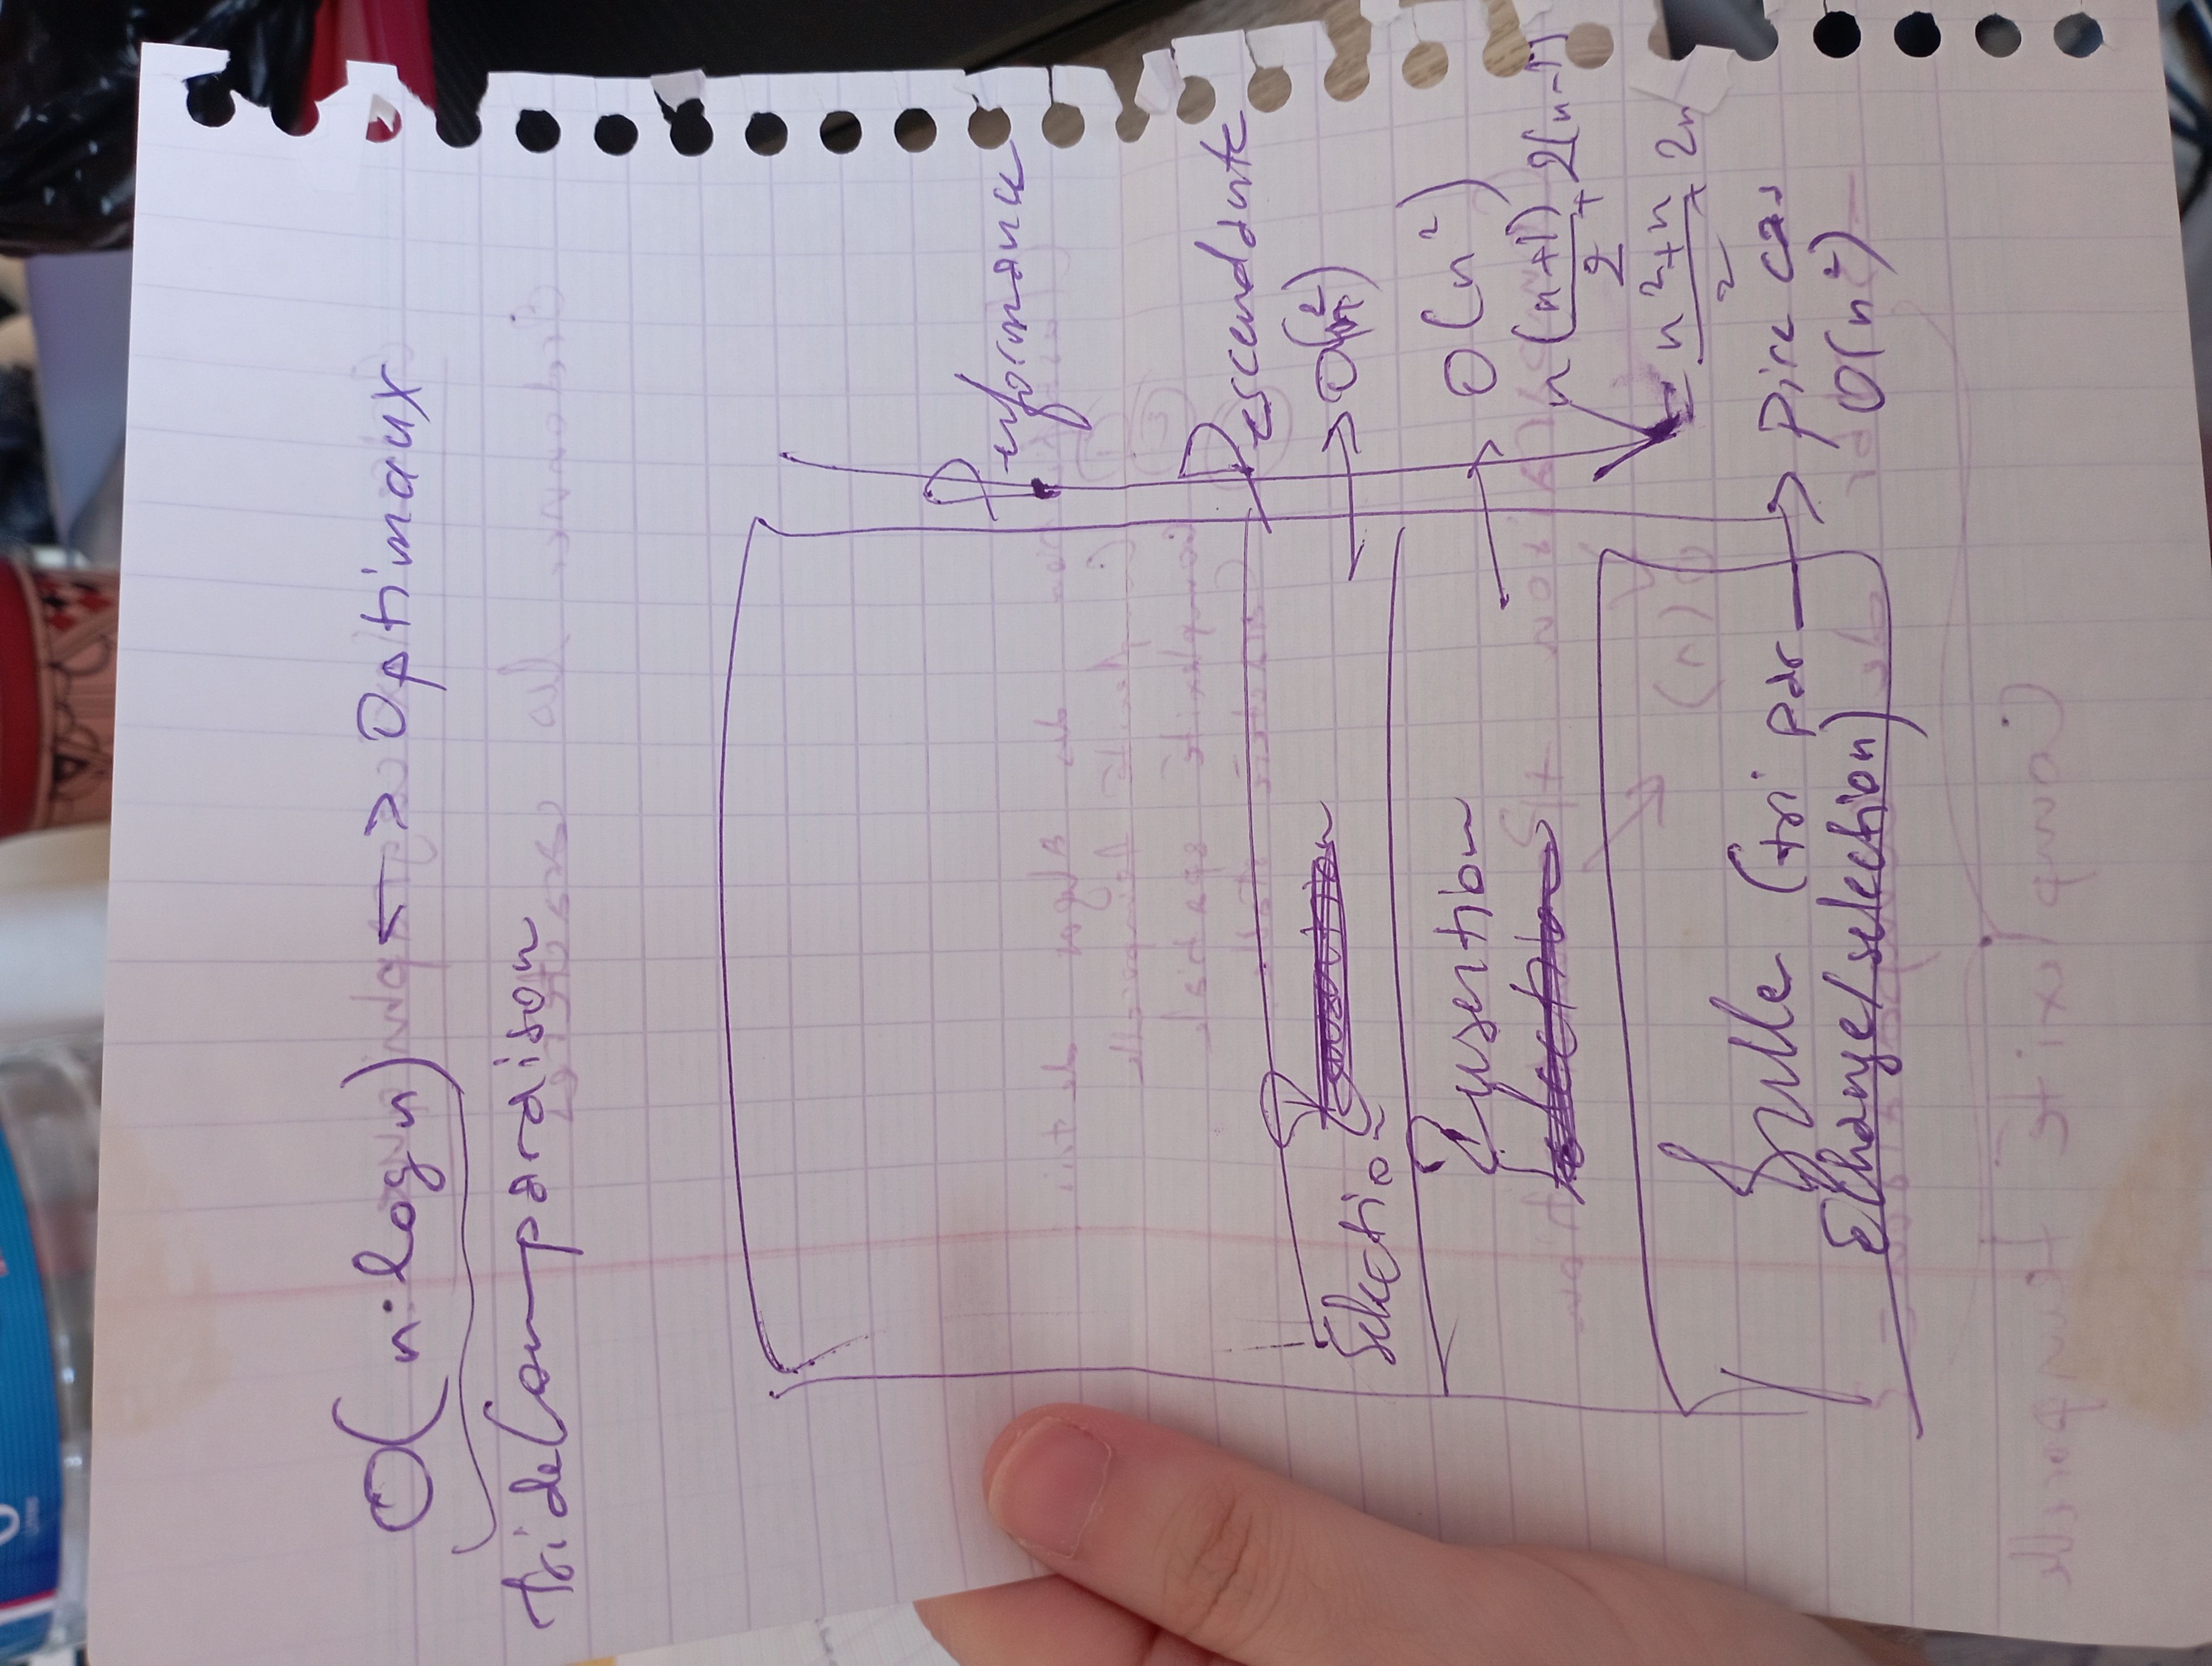 O(n·log n) <-> Optimaux
tri de Comparaison
Performance
Descendante
Selection -> O(n²)
Insertion -> O(n²)
n(n+1)/2 + 2(n-1)
n²+n/2 + 2n
bulle (tri par -> pire cas
Echange/selection) O(n²)